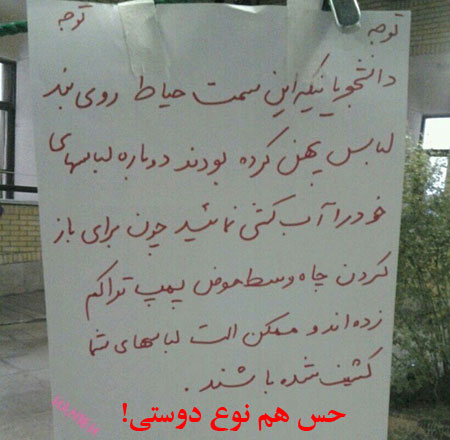 توجه توجه
دانشجویانیکه این سمت حیاط روی بند
لباس پهن کرده بودند دوباره لباسهای
خود را آب کشی نمائید چون برای باز
کردن چاه وسط حوض پمپ تراکم
زده اند و ممکن است لباسهای شما
کثیف شده باشند.
حس هم نوع دوستی!